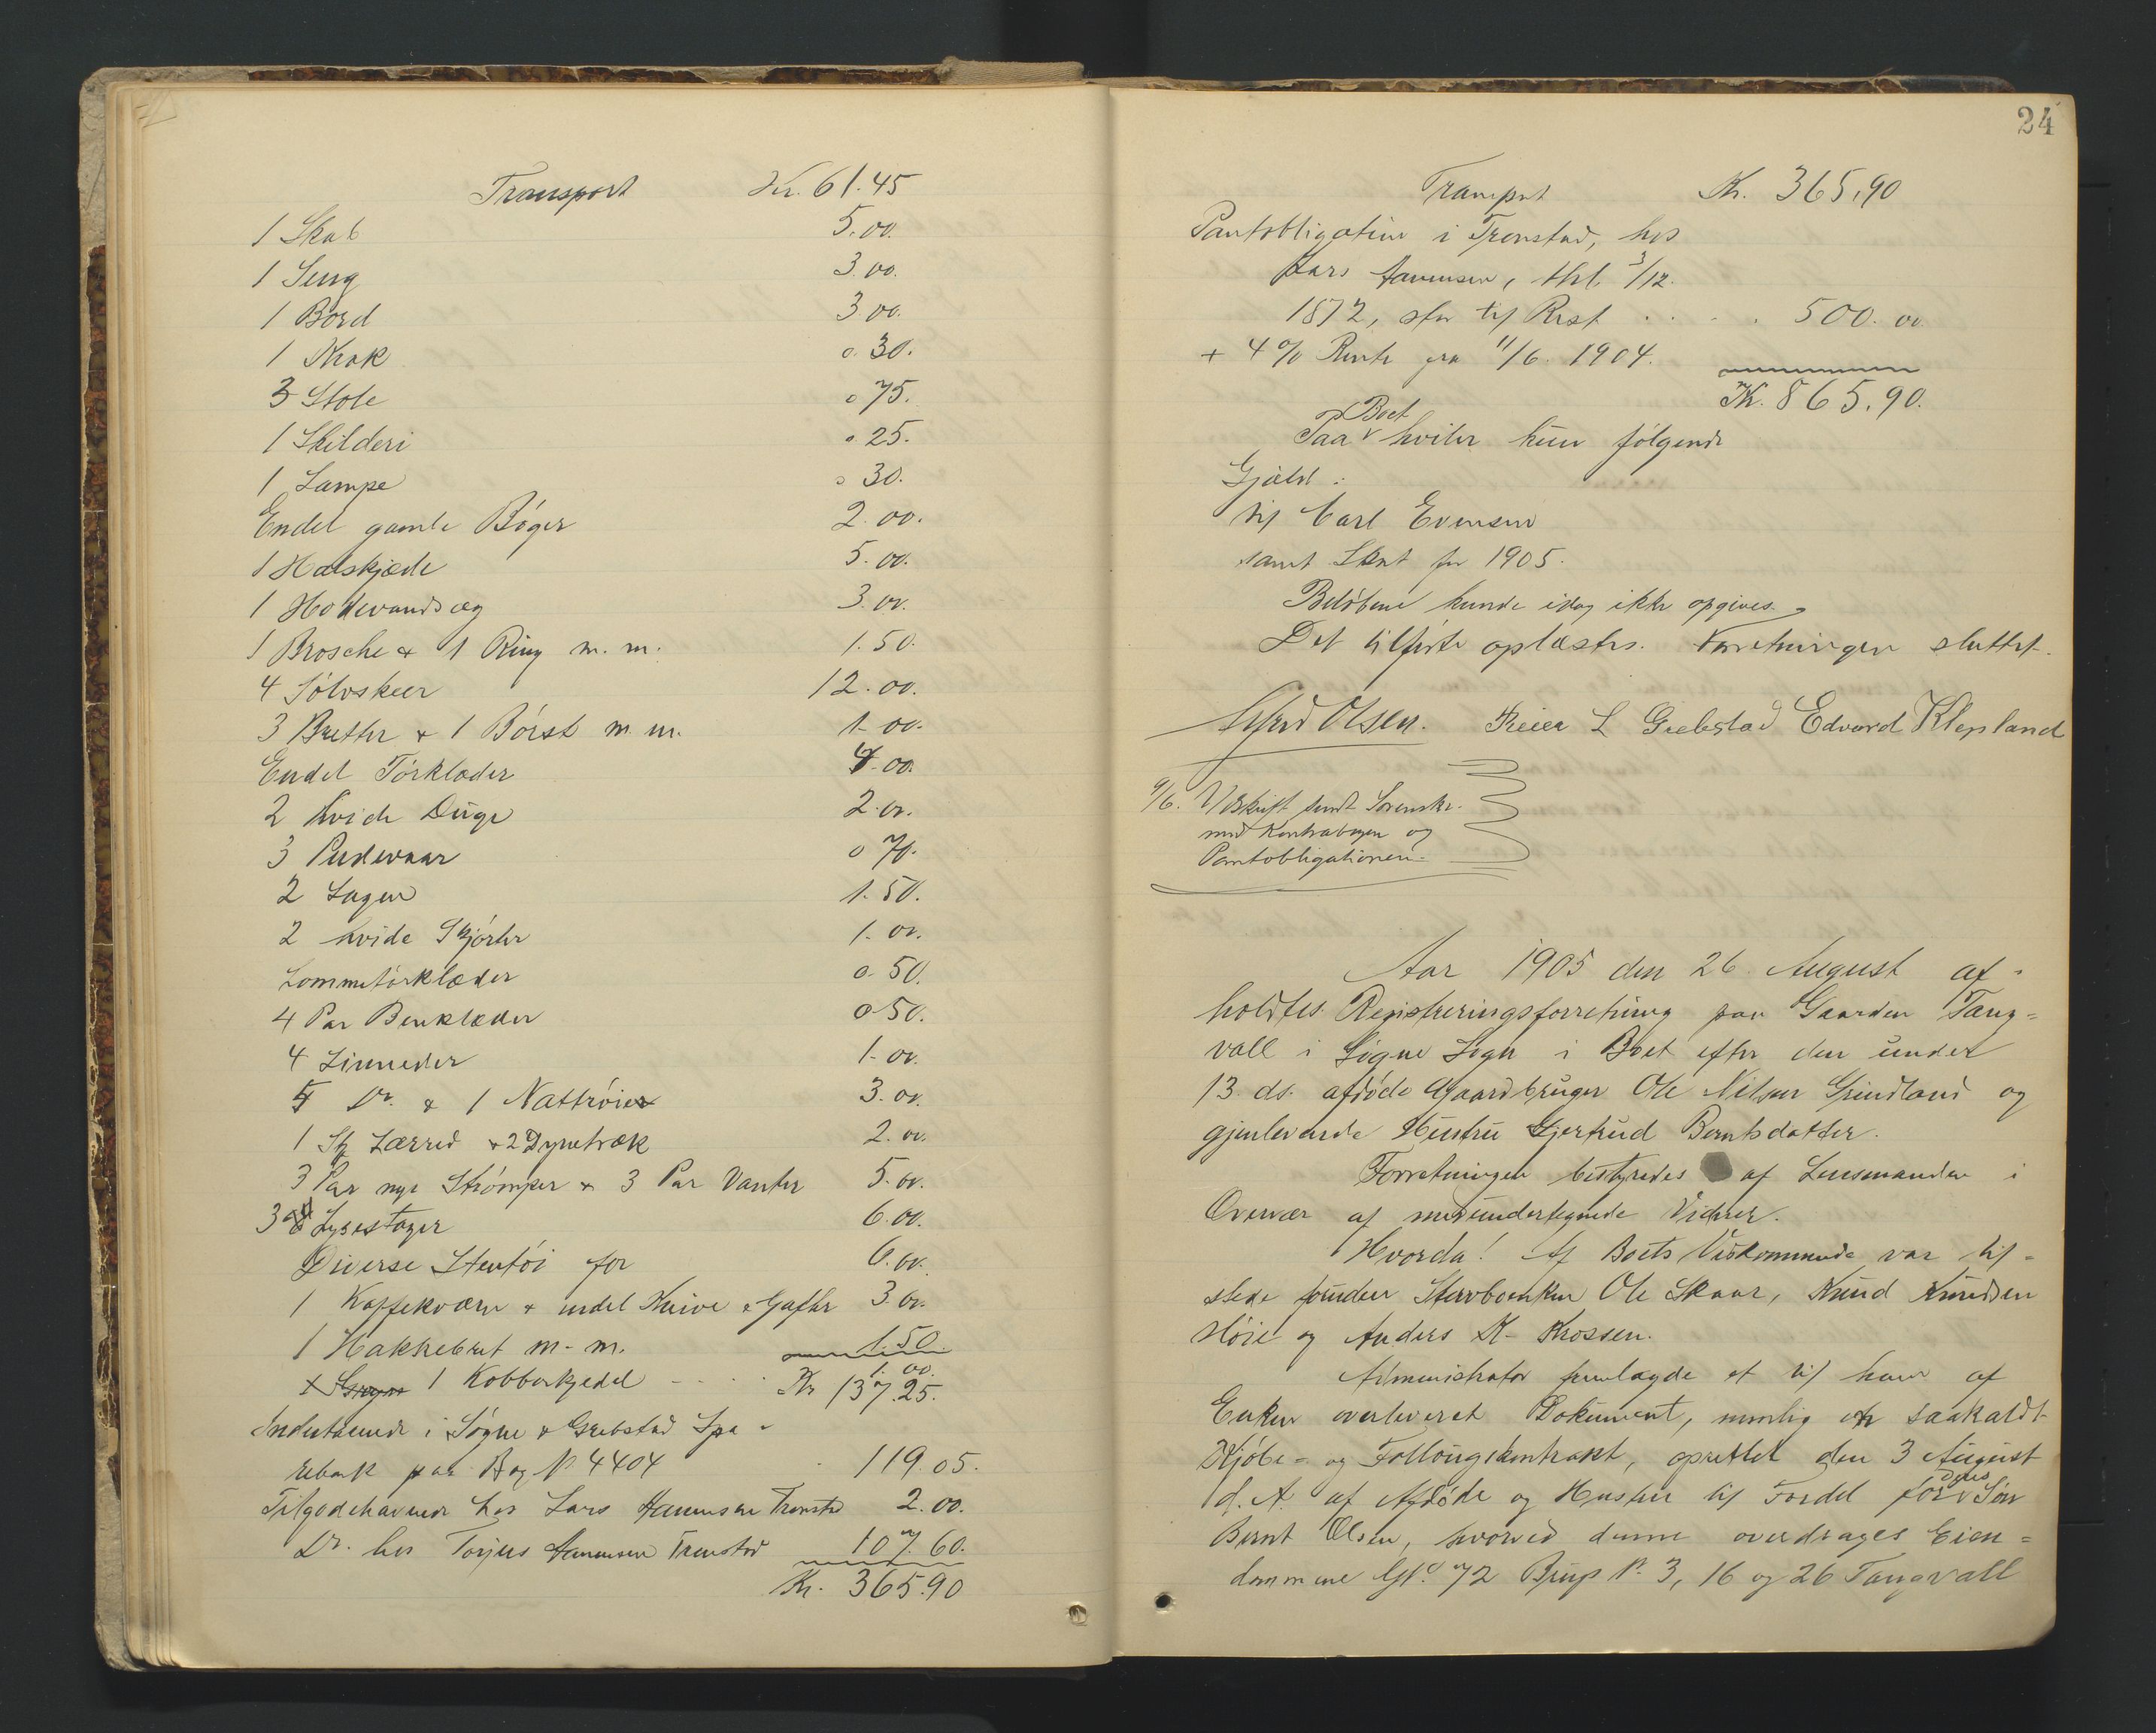 Transport Kr. 61.45
1 Skab 5.00.
1 Seng 3.00.
1 Bord 3.00.
1 Krak 0.30.
3 Stole 0 75.
1 Skilderi 0.25.
1 Lampe 0 30.
Endel gamle Bøger 2.00.
1 Halskjæde 5.00.
1 Hodevandsæg 3.00.
1 Brosche & 1 Ring m.m. 1.50.
4 Sølvskeer 12.00.
3 Bretter & 1 Børst m.m. 1.00.
Endel Tørklæder 4.00.
2 hvide Duge 2.00.
3 Pudevaar 0 70.
2 Lagen 1.50.
2 hvide Skjørter 1.00.
Lommetørklæder 0.50.
4 Par Benklæder 0 50.
4 Linneder 1.00.
5 Do. & 1 Nattrøie 3.00.
1 St Lærred & 2 Dynetræk 2.00.
3 Par nye Strømper & 3 Par Vanter 5.00.
3 Lysestager 6.00.
Diverse Stentøi for 6.00.
1 Kaffekværn & endel Knive & Gafler 3.00.
1 Hakkebret m.m. 1.50.
1 Kobberkjedel 1.00.
Kr 137.25.
Indestaaende i Søgne & Grebstad Spa-
rebank paa Bog No 4404 119.05.
Tilgodehavende hos Lars Aanensen Trenstad 2.00.
Do. hos Torjus Aanensen Trenstad 107.60.
Kr. 365.90
24
Transport Kr. 365,90
Pantobligation i Trenstad, hos
Lars Aanensen, thl. 3/12.
1872, stor til Rest 500.00
+ 4% Rente fra 11/6. 1904.
Kr. 865.90.
Paa Boet hviler kun følgende
Gjæld:
til Carl Evensen
samt Skat for 1905.
Beløbene kunde idag ikke opgives.
Det tilførte oplæstes. Forretningen sluttet.
Olsen. L Grebstad Edvard Klepland
9/6. Udskrift sendt Sorenskr.
med Kontrabogen og
Pantobligationen.
Aar 1905 den 26 August af-
holdtes Registreringsforretning paa Gaarden Tang=
vall i Søgne Sogn i Boet efter den under
13 ds. afdøde Gaardbruger Ole Nilsen Grindland og
gjenlevende Hustru Gjertrud Berntsdatter.
Forretningen bestyredes af Lensmanden i
Overvær af medundertegnede Vidner.
Hvorda! Af Boets Vedkommende var til-
stede foruden Stervboenken Ole Skaar, Knud Knudsen
Høie og Anders K. Krossen.
Administrator fremlagde et til ham af
Enken overleveret Dokument, nemlig en saakaldt
Kjøbe- og Follougskontrakt, oprettet den 3 August
d.A. af Afdøde og Hustru til Fordel for deres Søn
Bernt Olsen, hvorved denne overdrages Eien=
dommene Gl. 72 Brug No. 3, 16 og 26 Tangvall